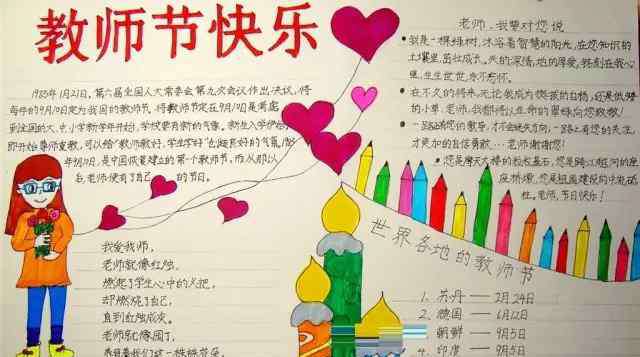 教师节快乐
1985年1月21日，第六届全国人大常委会第九次会议作出决议，将
每年的9月10日定为我国的教师节。将教师节定在9月10日是考虑
到全国的大、中小学新学年开始，学校要有新的气象。新生入学伊始，
即开始尊师重教，可以给"教师教好、学生学好"创造良好的气氛。
年9月10日，是中国恢复建立的第一个教师节，从那以
老师便有了自己的节日。
我爱我师，
老师就像红烛，
燃起了学生心中的火把，
却燃烧了自己，
直到红烛成灰。
老师就像园丁，
老师、我要对您说
我是一棵绿树，沐浴着智慧的阳光，在您知识的
土壤里茁壮成长。天的深情，地的厚爱，铭刻在我心
里，生生世世，永不忘怀。
在不久的将来，无论我成为挺拔的白杨，还是低矮
的小草，老师，我都将以生命的翠绿向您致敬！
一路路有您的教导，才不会迷失方向，一路上有您的关注，
才更加的自信勇敢……老师谢谢您！
您是摩天大楼的根根基石，您是跨江越河的座
座桥墩，您是祖国建设的中流砥
柱。老师，节日快乐！
世界各地的教师节
1. 苏丹——2月24日
2. 德国——6月12日
朝鲜——9月5日
4. 印度——9月5日